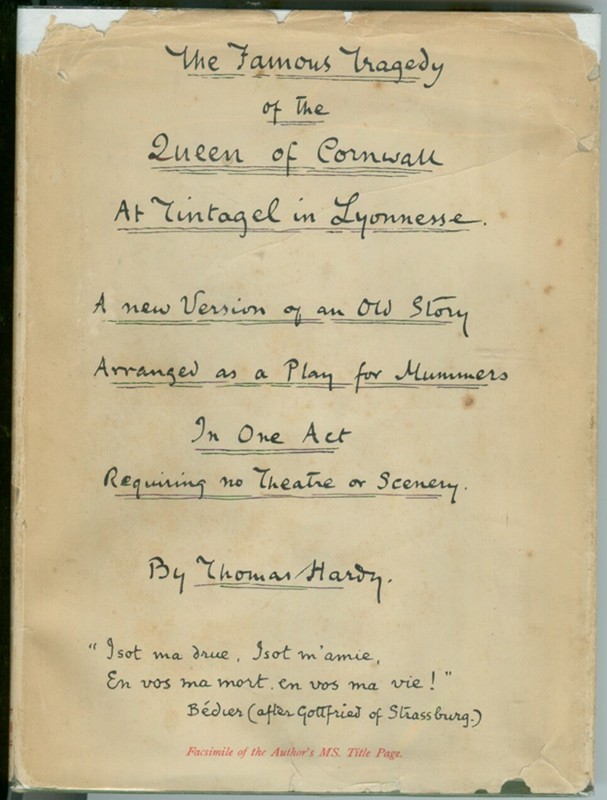 The Famous Tragedy
of the
Queen of Cornwall
At Tintagel in Lyonnesse.
A new Version of an Old Story
Arranged as a Play for Mummers
In One Act
Requiring no Theatre or Scenery.
By Thomas Hardy.
"Isot ma drue, Isot m'amie,
En vos ma mort, en vos ma vie!"
Bédier (after Gottfried of Strassburg.)
Facsimile of the Author's MS. Title Page.